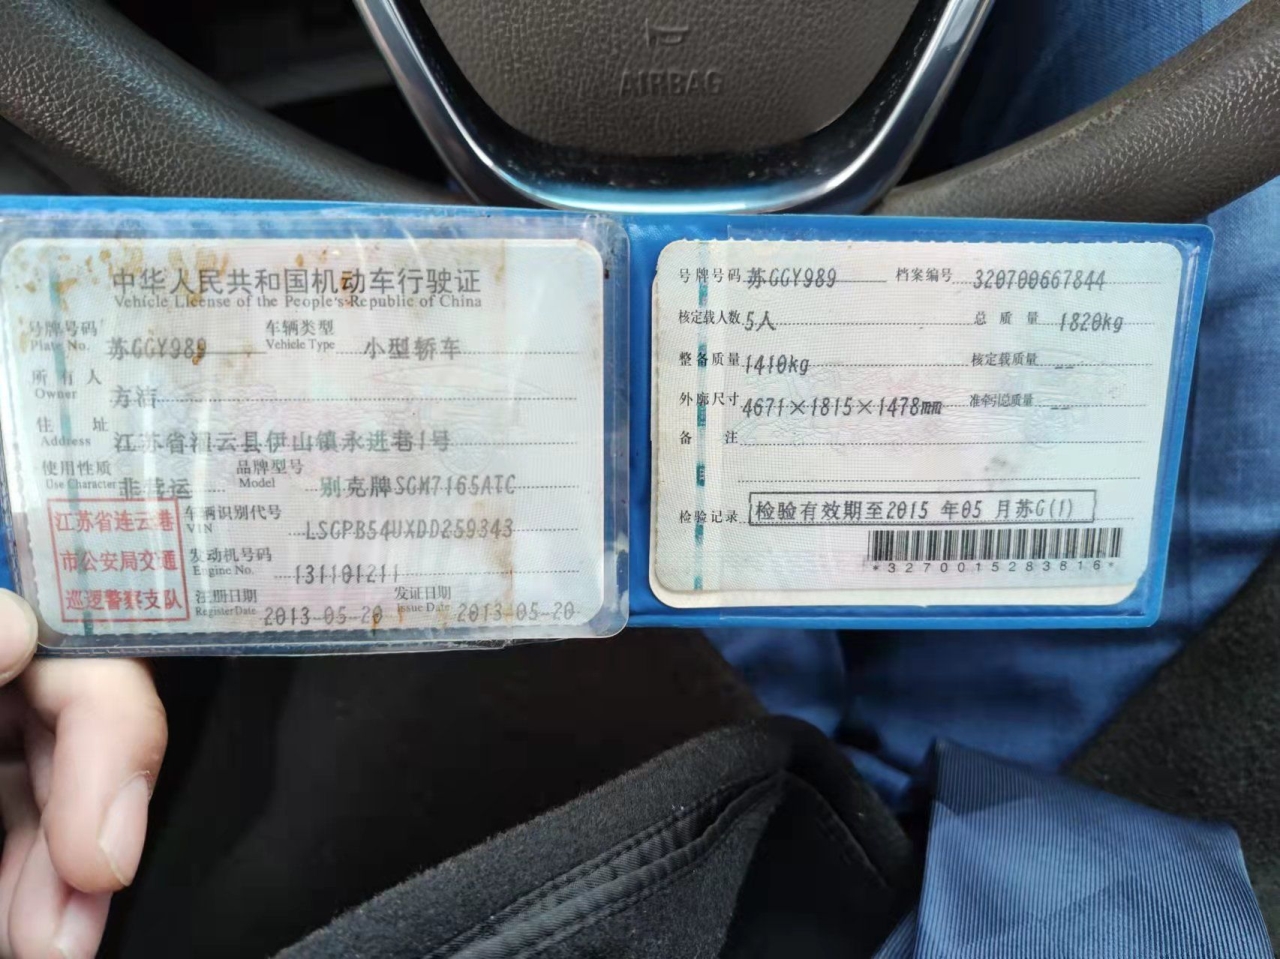 AIRBAG
中华人民共和国机动车行驶证
Vehicle License of the People's Republic of China
号牌号码 苏GGY989 车辆类型 小型轿车
Plate No. Vehicle Type
所有人 方洁
Owner
住址 江苏省灌云县伊山镇永进巷1号
Address
使用性质 非营运 品牌型号 别克牌SGM7165ATC
Use Character Model
江苏省连云港
市公安局交通
巡逻警察支队
车辆识别代号 LSGPB54UXDD259343
VIN
发动机号码 131101211
Engine No.
注册日期 2013-05-20 发证日期 2013-05-20
Register Date Issue Date
号牌号码 苏GGY989 档案编号 320700667844
核定载人数 5人 总质量 1820kg
整备质量 1410kg 核定载质量 --
外廓尺寸 4671×1815×1478mm 准牵引总质量 --
备注
检验记录 检验有效期至2015年05月苏G(1)
*3270015283616*